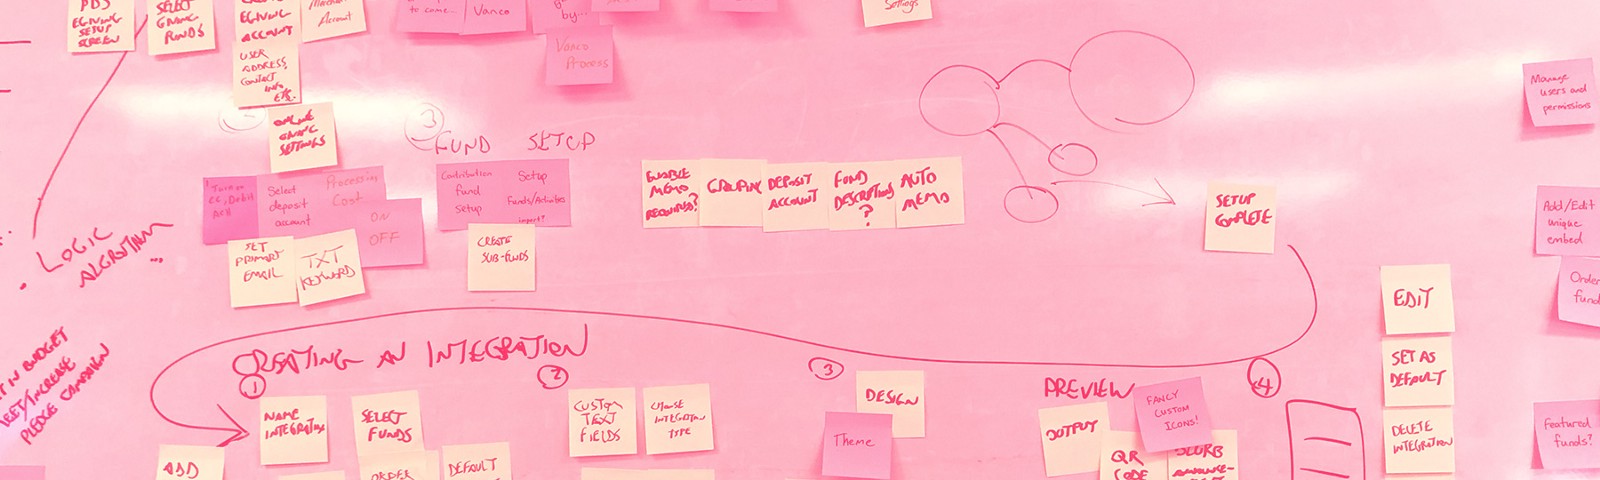 PDS
EGIVING
SETUP
SCREEN
SELECT
GIVING
FUNDS
EGIVING
ACCOUNT
Merchant
Account
to come...
Vanco
by...
Vanco
Process
Settings
USER
ADDRESS,
CONTACT
INFO
ETC.
ONLINE
GIVING
SETTINGS
3
FUND SETUP
Turn on
CC, Debit
ACH
Select
deposit
account
Processing
Cost
ON
OFF
SET
PRIMARY
EMAIL
TXT
KEYWORD
Contribution
fund
setup
Setup
Funds/Activities
import?
CREATE
SUB-FUNDS
ENABLE
MEMO
REQUIRED?
GROUPING
DEPOSIT
ACCOUNT
FUND
DESCRIPTION
?
AUTO
MEMO
SETUP
COMPLETE
Manage
users and
permissions
Add/Edit
unique
embed
Order
fund
Featured
funds?
LOGIC
ALGORITHM
...
BUDGET
MEET/INCREASE
PLEDGE CAMPAIGN
CREATING AN INTEGRATION
1
NAME
INTEGRATION
SELECT
FUNDS
ADD
ORDER
DEFAULT
2
CUSTOM
TEXT
FIELDS
CHOOSE
INTEGRATION
TYPE
3
DESIGN
Theme
PREVIEW
4
OUTPUT
FANCY
CUSTOM
ICONS!
QR
CODE
BLURB
EDIT
SET AS
DEFAULT
DELETE
INTEGRATION